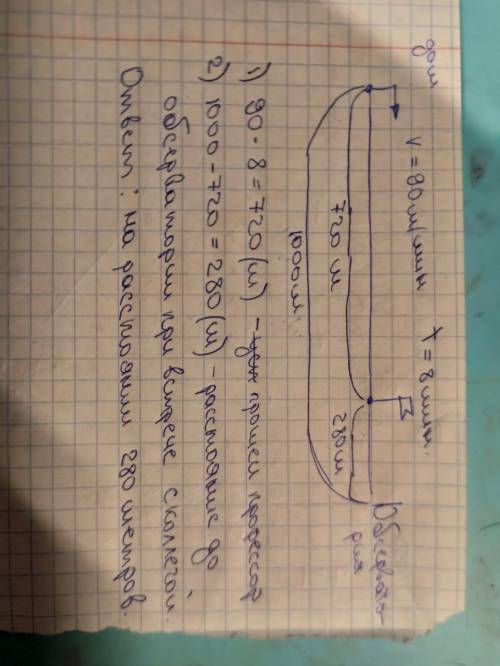 дом
v = 90 м/мин t = 8 мин.
720 м 280 м
Обсервато-
рия
1000 м
1) 90 · 8 = 720 (м) – прошел профессор
2) 1000 – 720 = 280 (м) – расстояние до
обсерватории при встрече с коллегой.
Ответ: на расстоянии 280 метров.